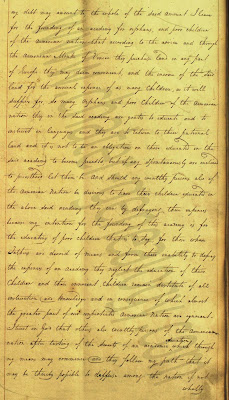 my debt may amount to the whole of the said amount I leave
for the founding of an academy for orphans, and poor children
of the American nation that according to the ways and through
the American
they may deem convenient, and the income of the said
land for the annual expenses of as many children, as it will
suffice for, so many orphans and poor children of the American
nation they in the said academy are gratis to educate and to
instruct in languages and they are to return to their paternal
land and it is not to be an obligation on their educated in the
said academy to become but if any spontaneously do venture
to let them be. And should any wealthy persons also of
the American nation be desirous to have their children educated in
the above said academy they are by defraying their expenses
because my intention for the founding of this academy is for
the educating of poor children that is to say for those whose
fathers are devoid of means and from their inability to defray
the expenses of an academy they neglect the education of their
children and their innocent children remain destitute of all
instruction and knowledge and in consequence of which almost
the greater part of our unfortunate American nation are ignorant.
I trust in God that others also wealthy persons of the American
nation after tasting of the sweets of an academic education which through
my means may commence and they follow my path that it
may be thereby possible to diffuse among the nation if not
wholly